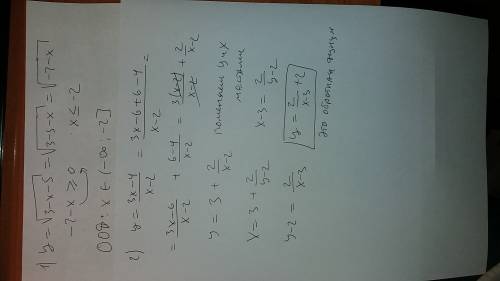 1) y = √(3-x-5) = √(3-5-x) = √(-2-x)
-2-x ≥ 0
x ≤ -2
ООФ: x ∈ (-∞; -2]
2) y = (3x-4)/(x-2) = (3x-6+6-4)/(x-2) =
= (3x-6)/(x-2) + (6-4)/(x-2) = 3(x-2)/(x-2) + 2/(x-2)
y = 3 + 2/(x-2) поменяем y и x местами
x = 3 + 2/(y-2) x-3 = 2/(y-2)
y-2 = 2/(x-3) y = 2/(x-3) + 2
это обратная